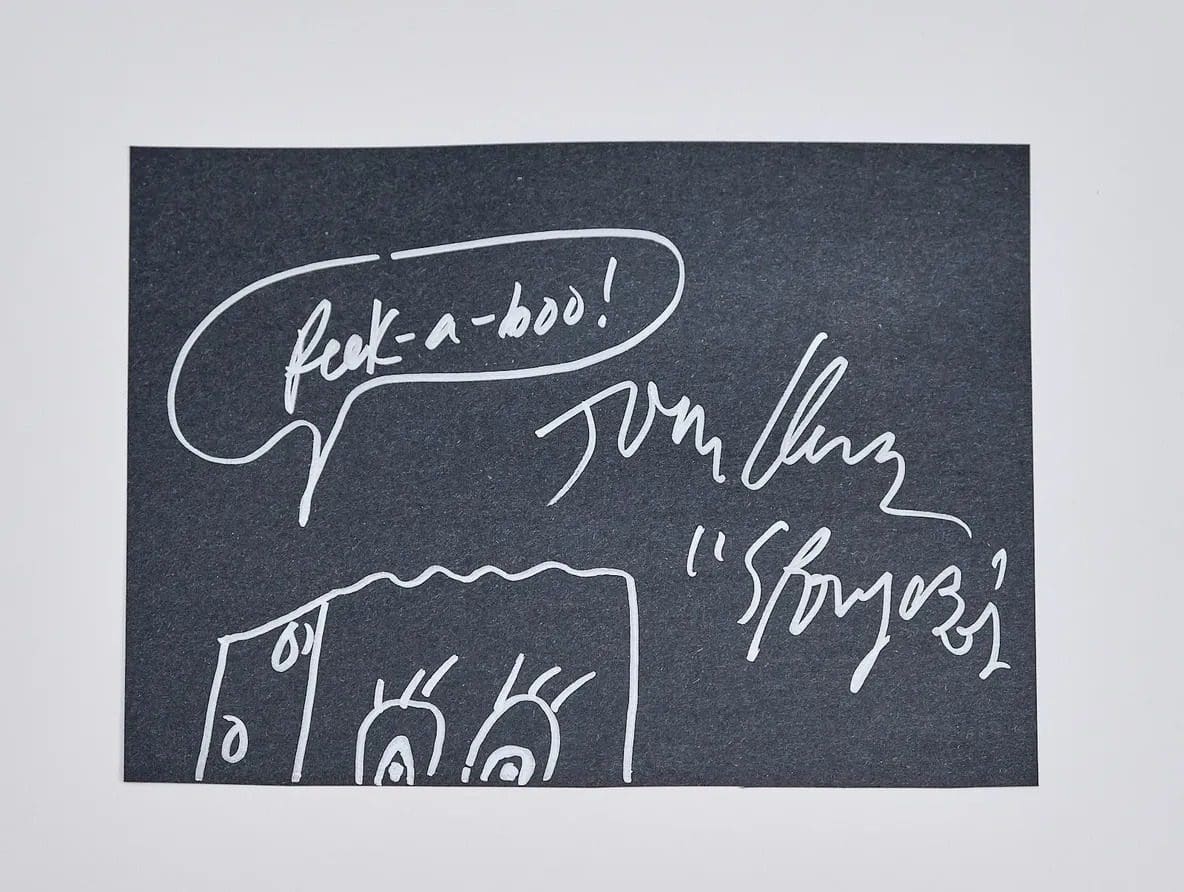 Peek-a-boo!
Tom Kenny
"SpongeBob"